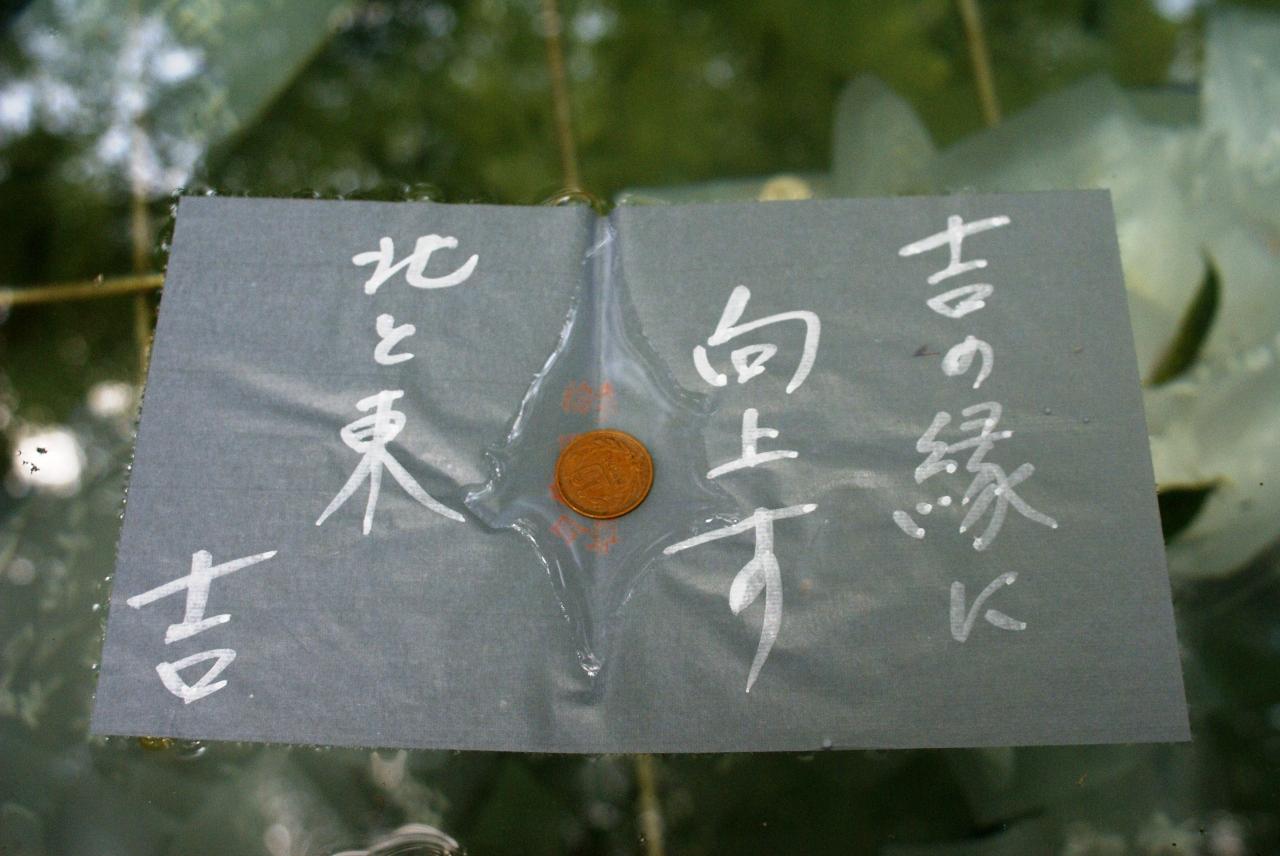 吉の縁に
向上す
北と東
吉